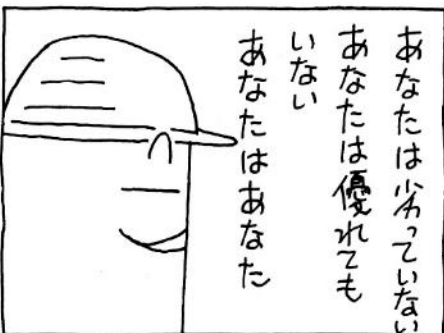 あなたは劣っていない
あなたは優れても
いない
あなたはあなた